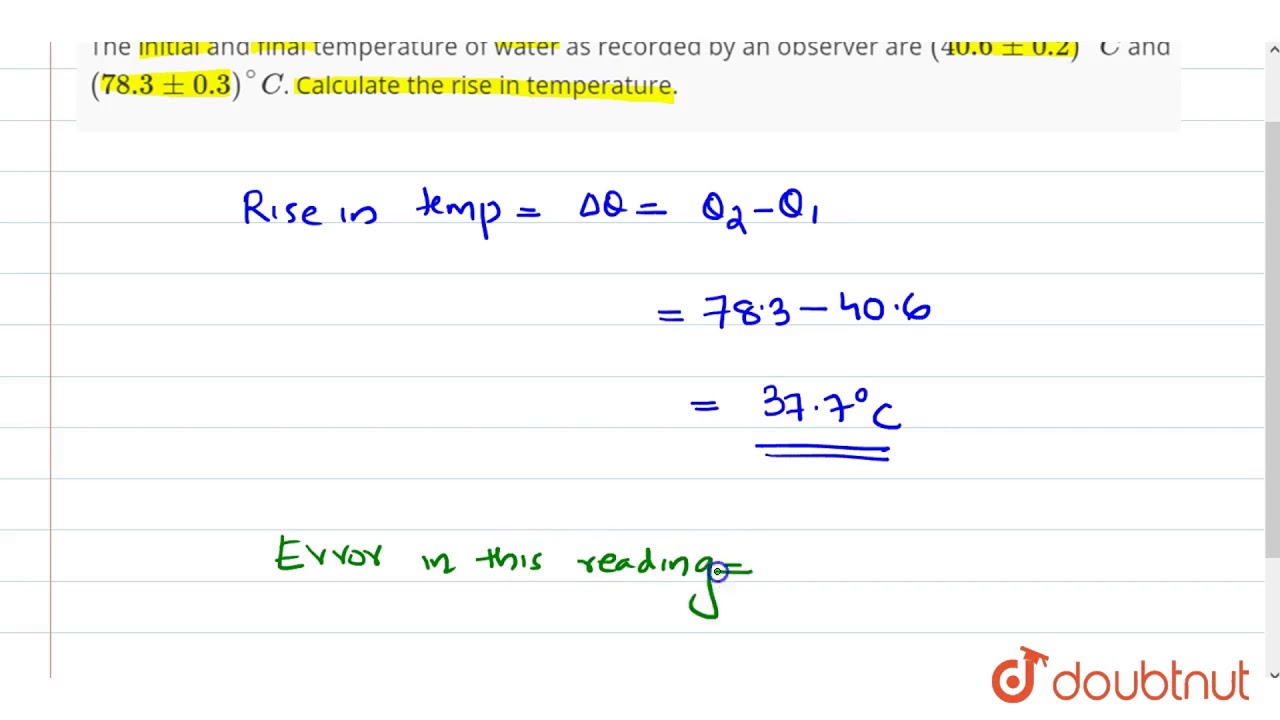 The initial and final temperature of water as recorded by an observer are (40.6 ± 0.2)° C and
(78.3 ± 0.3)° C. Calculate the rise in temperature.
Rise in temp = Δθ = θ2 − θ1
= 78.3 − 40.6
= 37.7°C
Error in this reading =
doubtnut